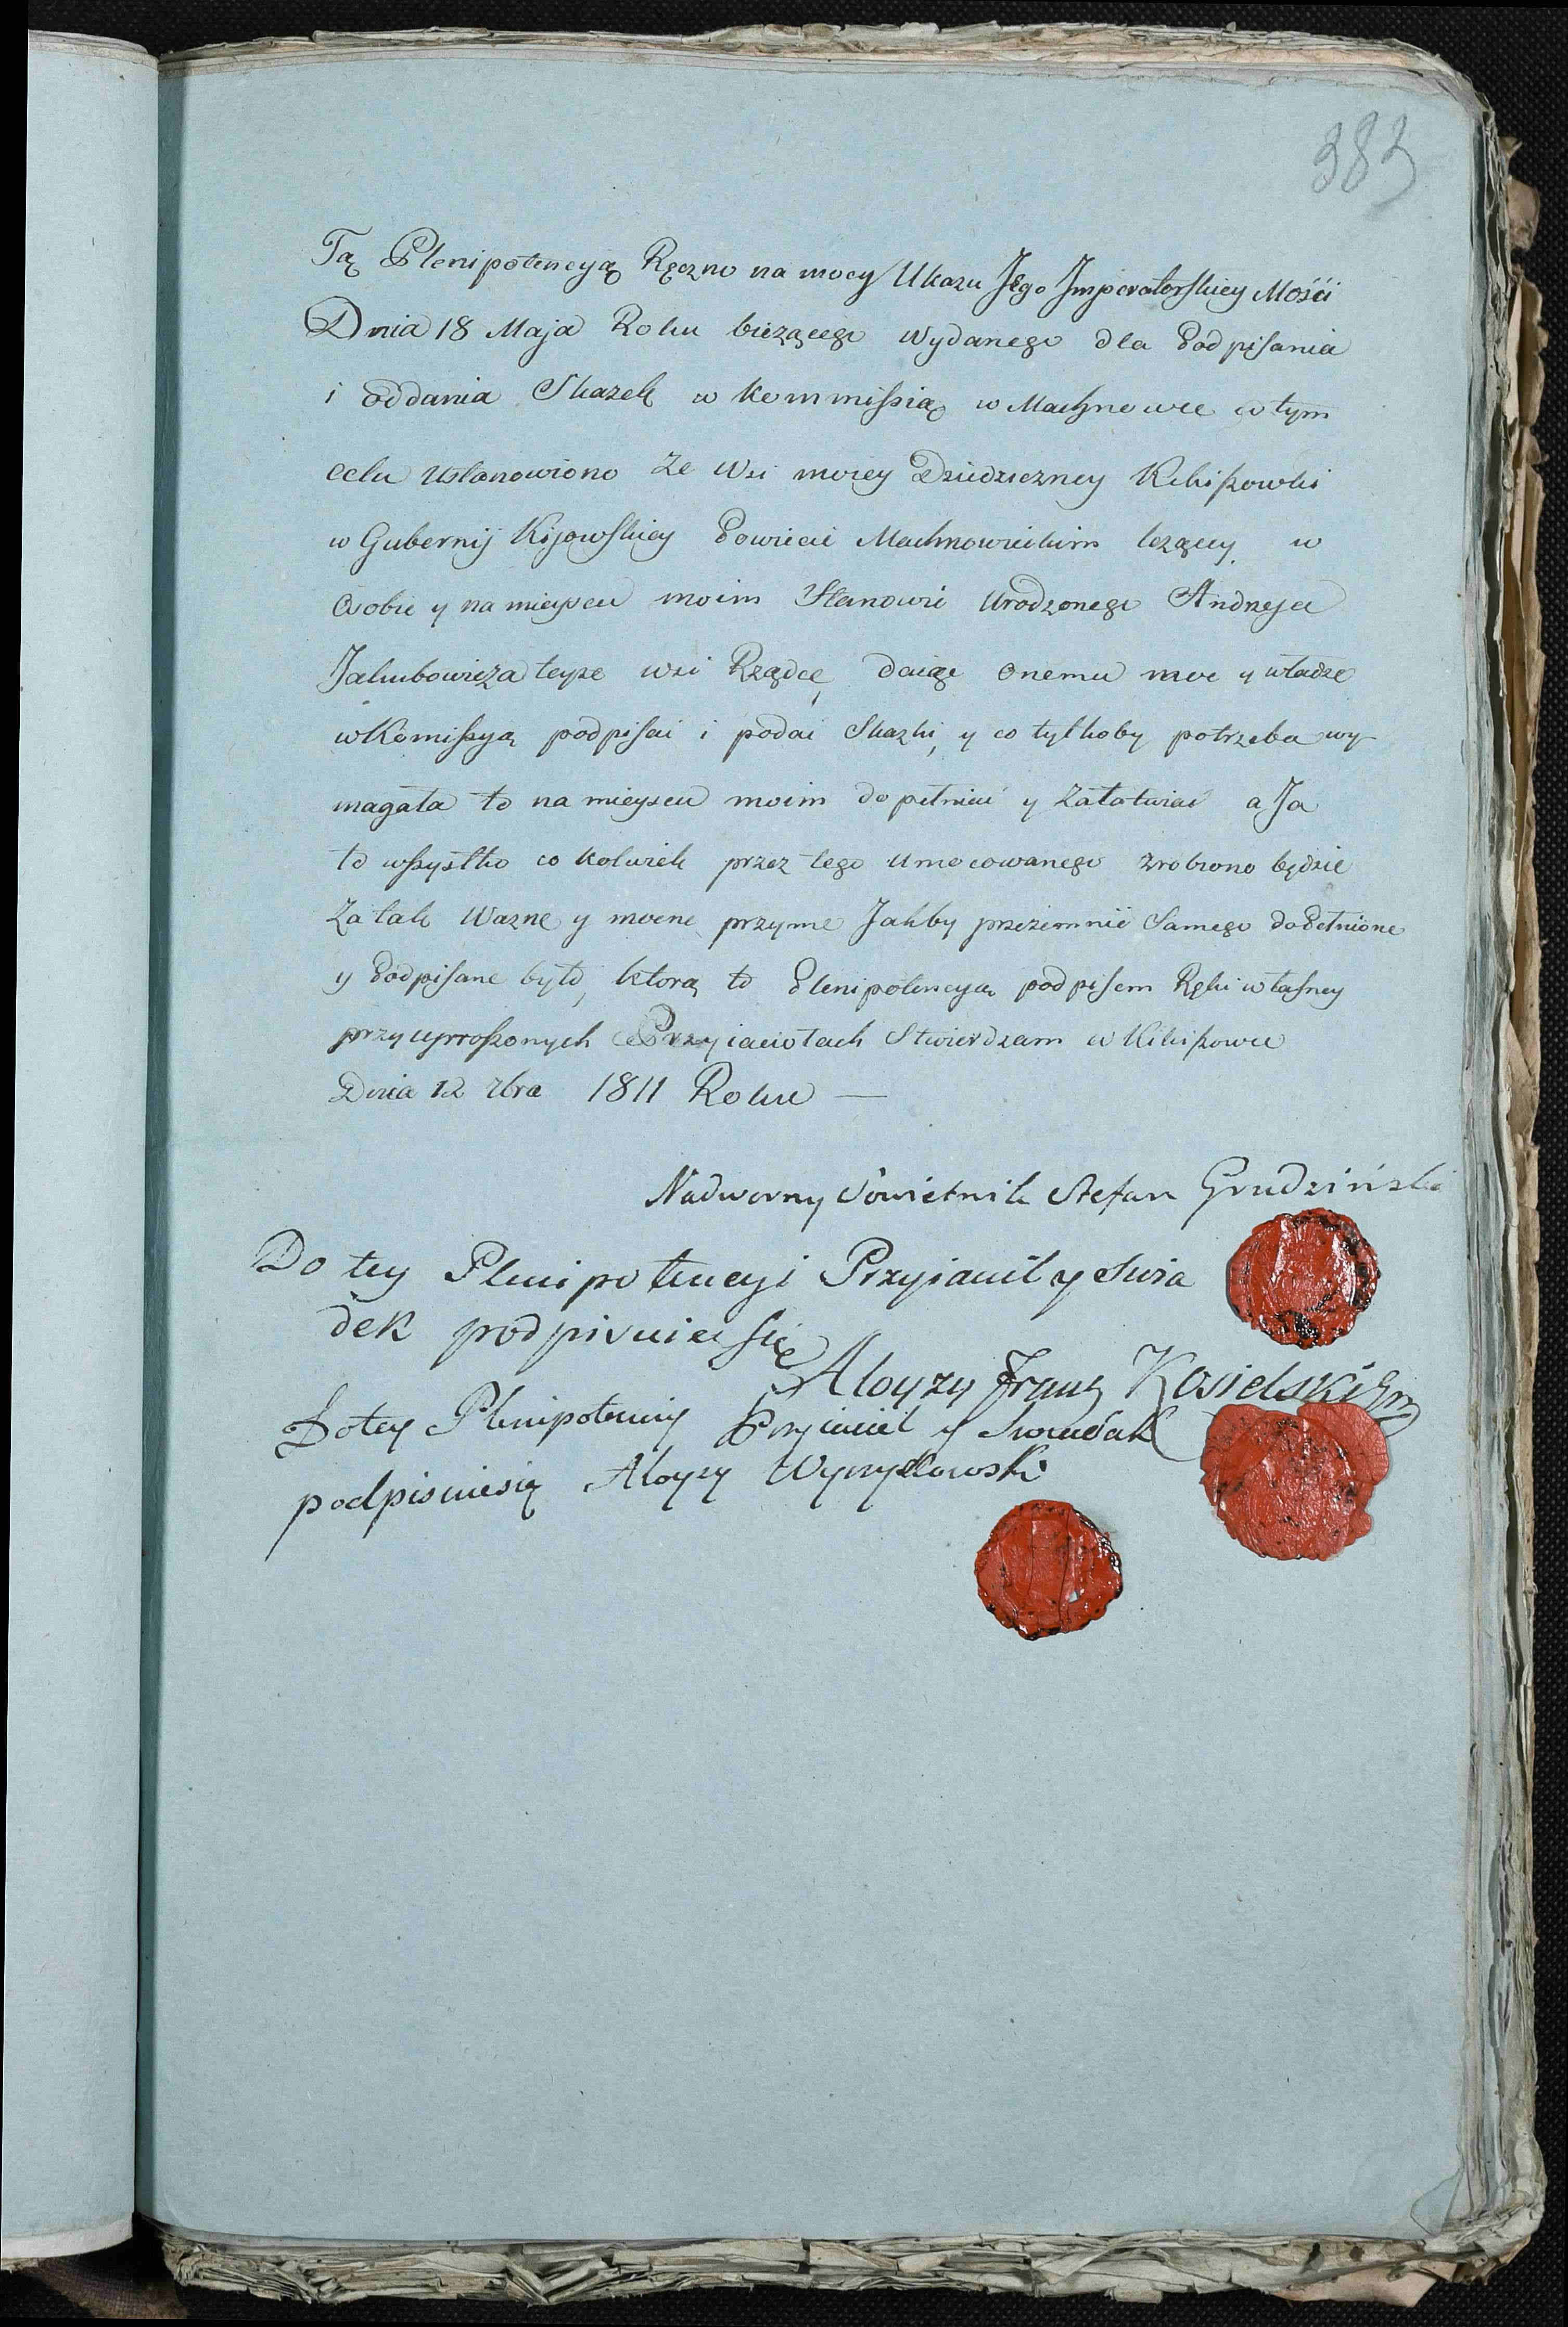 383
Tą Plenipotencyą Ręczno na mocy Ukazu Jego Jmperatorskiey Mości
Dnia 18 Maja Roku bieżącego Wydanego dla Podpisania
i oddania Skazek w Kommissią w Machnowce w tym
celu Ustanowiono Ze Wsi moiey Dziedziczney Kiliszowki
w Gubernij Kijowskiey Powiecie Machnowieckim leząccy w
Osobie y na mieyscu moim Stanowie Urodzonego Andrzeja
Jakubowicza teyze wsi Rządcę, daiąc onemu moc y władze
w Komissyą podpisać i podać Skazki, y co tylkoby potrzeba wy-
magała to na mieyscu moim dopełnić y Załatwiać a Ja
to wszystko co kolwiek przez tego umocowanego zrobiono będzie
Za tak Wazne y mocne przyme Jakby przezemnie Samego doPełnione
y Podpisane było, ktorą to Plenipotencyą podpisem Ręki własney
przy uproszonych Przyiaciołach Stwierdzam w Kiliszowce
Dnia 12 7bra 1811 Roku —
Nadworny Sowietnik Stefan Grudziński
Do tey Plenipotencyi Przyiaciel y Swia
dek podpisuie się
Aloyzy Franz Kosielski
Do tey Plenipotenciy Przyiaciel y Swiadek
podpisuiesię Aloyzy Wyrzykowski